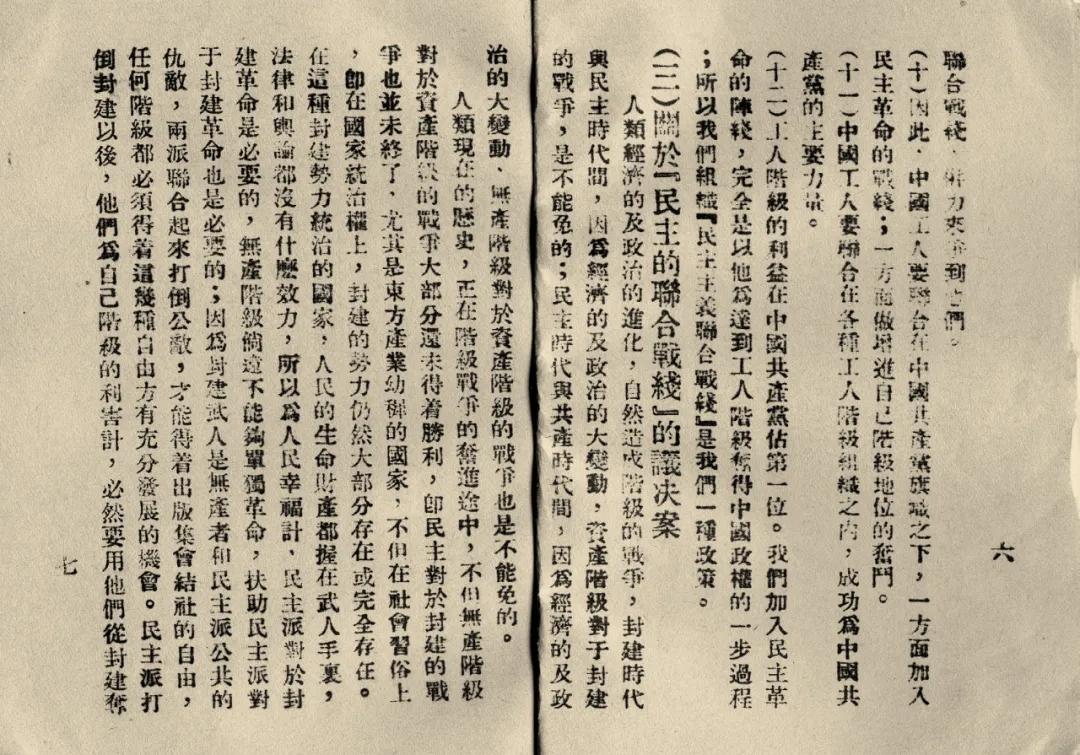 聯合戰綫，併力來爭到它們。
(十)因此，中國工人要聯合在中國共產黨旗幟之下，一方面加入
民主革命的戰綫；一方面做增進自己階級地位的奮鬥。
(十一)中國工人要聯合在各種工人階級組織之內，成功為中國共
產黨的主要力量。
(十二)工人階級的利益在中國共產黨佔第一位。我們加入民主革
命的陣綫，完全是以他爲達到工人階級奪得中國政權的一步過程
；所以我們組織『民主主義聯合戰綫』是我們一種政策。
(二)關於『民主的聯合戰綫』的議決案
人類經濟的及政治的進化，自然造成階級的戰爭，封建時代
與民主時代間，因爲經濟的及政治的大變動，資產階級對于封建
的戰爭，是不能免的；民主時代與共產時代間，因爲經濟的及政
六
治的大變動、無產階級對於資產階級的戰爭也是不能免的。
人類現在的歷史，正在階級戰爭的奮進途中，不但無產階級
對於資產階級的戰爭大部分還未得着勝利，卽民主對於封建的戰
爭也並未終了，尤其是東方產業幼稺的國家，不但在社會習俗上
，卽在國家統治權上，封建的勢力仍然大部分存在或完全存在。
在這種封建勢力統治的國家，人民的生命財產都握在武人手裏，
法律和輿論都沒有什麼效力，所以爲人民幸福計、民主派對於封
建革命是必要的，無產階級倘還不能夠單獨革命，扶助民主派對
于封建革命也是必要的；因爲封建武人是無產者和民主派公共的
仇敵，兩派聯合起來打倒公敵，才能得着出版集會結社的自由，
任何階級都必須得着這幾種自由方有充分發展的機會。民主派打
倒封建以後，他們爲自己階級的利害計，必然要用他們從封建奪
七